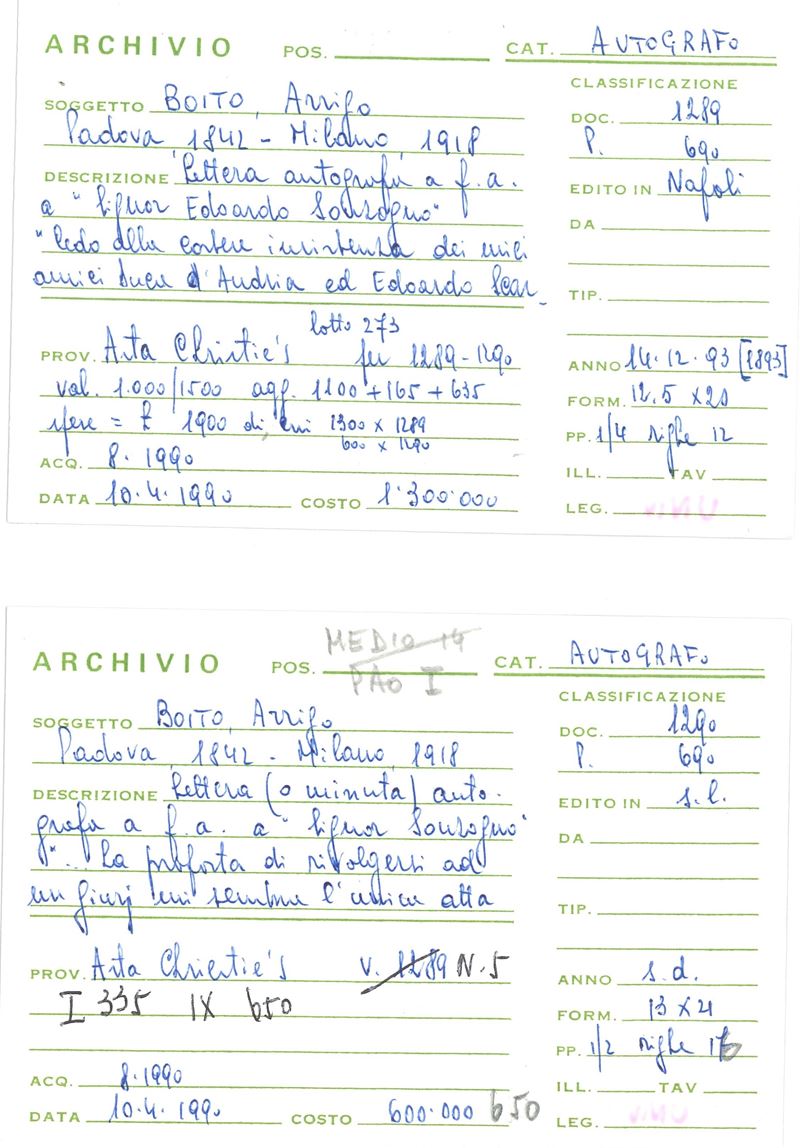 ARCHIVIO POS. CAT. AUTOGRAFO
CLASSIFICAZIONE
SOGGETTO BOITO, Arrigo
DOC. 1289
Padova, 1842 - Milano, 1918
P. 690
DESCRIZIONE Lettera autografa a f.a.
EDITO IN Napoli
a "Signor Edoardo Sonzogno"
DA
"Cedo alla cortese insistenza dei miei
amici Duca d'Andria ed Edoardo Scar_
TIP.
lotto 273
PROV. Asta Christie's per 1289-1290
ANNO 14.12.93 [1893]
val. 1.000/1500 agg. 1100+165+635
FORM. 12,5 x 20
spese = £ 1900 di cui 1300 x 1289
600 x 1290
PP. 1/4 righe 12
ACQ. 8.1990
ILL. TAV
DATA 10.4.1990 COSTO 1.300.000
LEG.
ARCHIVIO POS. MEDIO 14 CAT. AUTOGRAFO
PAO I
CLASSIFICAZIONE
SOGGETTO BOITO, Arrigo
DOC. 1290
Padova, 1842 - Milano, 1918
P. 690
DESCRIZIONE Lettera (o minuta) auto-
EDITO IN s.l.
grafa a f.a. a "Signor Sonzogno"
DA
"... La proposta di rivolgersi ad
un giurì mi sembra l'unica atta
TIP.
PROV. Asta Christie's v. 1289 N.5
ANNO s.d.
I 335 IX 650
FORM. 13 x 21
PP. 1/2 righe 16
ACQ. 8.1990
ILL. TAV
DATA 10.4.1990 COSTO 600.000 650
LEG.